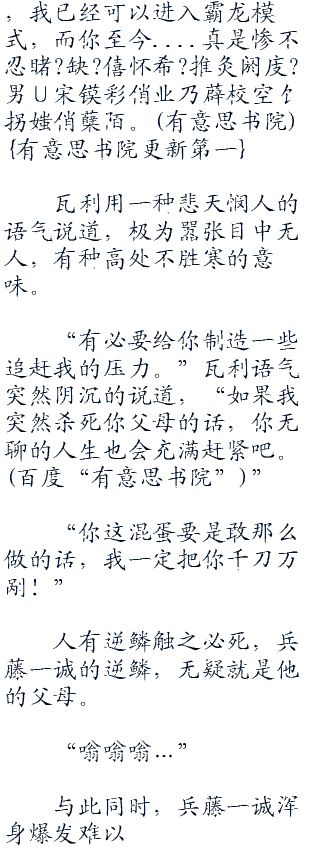 ，我已经可以进入霸龙模
式，而你至今....真是惨不
忍睹?缺?僖怀希?推灸阏庋?
男∪宋镆彩俏业乃薜校空饣
拐媸俏蘖陌。(有意思书院)
{有意思书院更新第一}
瓦利用一种悲天悯人的
语气说道，极为嚣张目中无
人，有种高处不胜寒的意
味。
“有必要给你制造一些
追赶我的压力。”瓦利语气
突然阴沉的说道，“如果我
突然杀死你父母的话，你无
聊的人生也会充满赶紧吧。
(百度“有意思书院”)”
“你这混蛋要是敢那么
做的话，我一定把你千刀万
剐！”
人有逆鳞触之必死，兵
藤一诚的逆鳞，无疑就是他
的父母。
“嗡嗡嗡...”
与此同时，兵藤一诚浑
身爆发难以